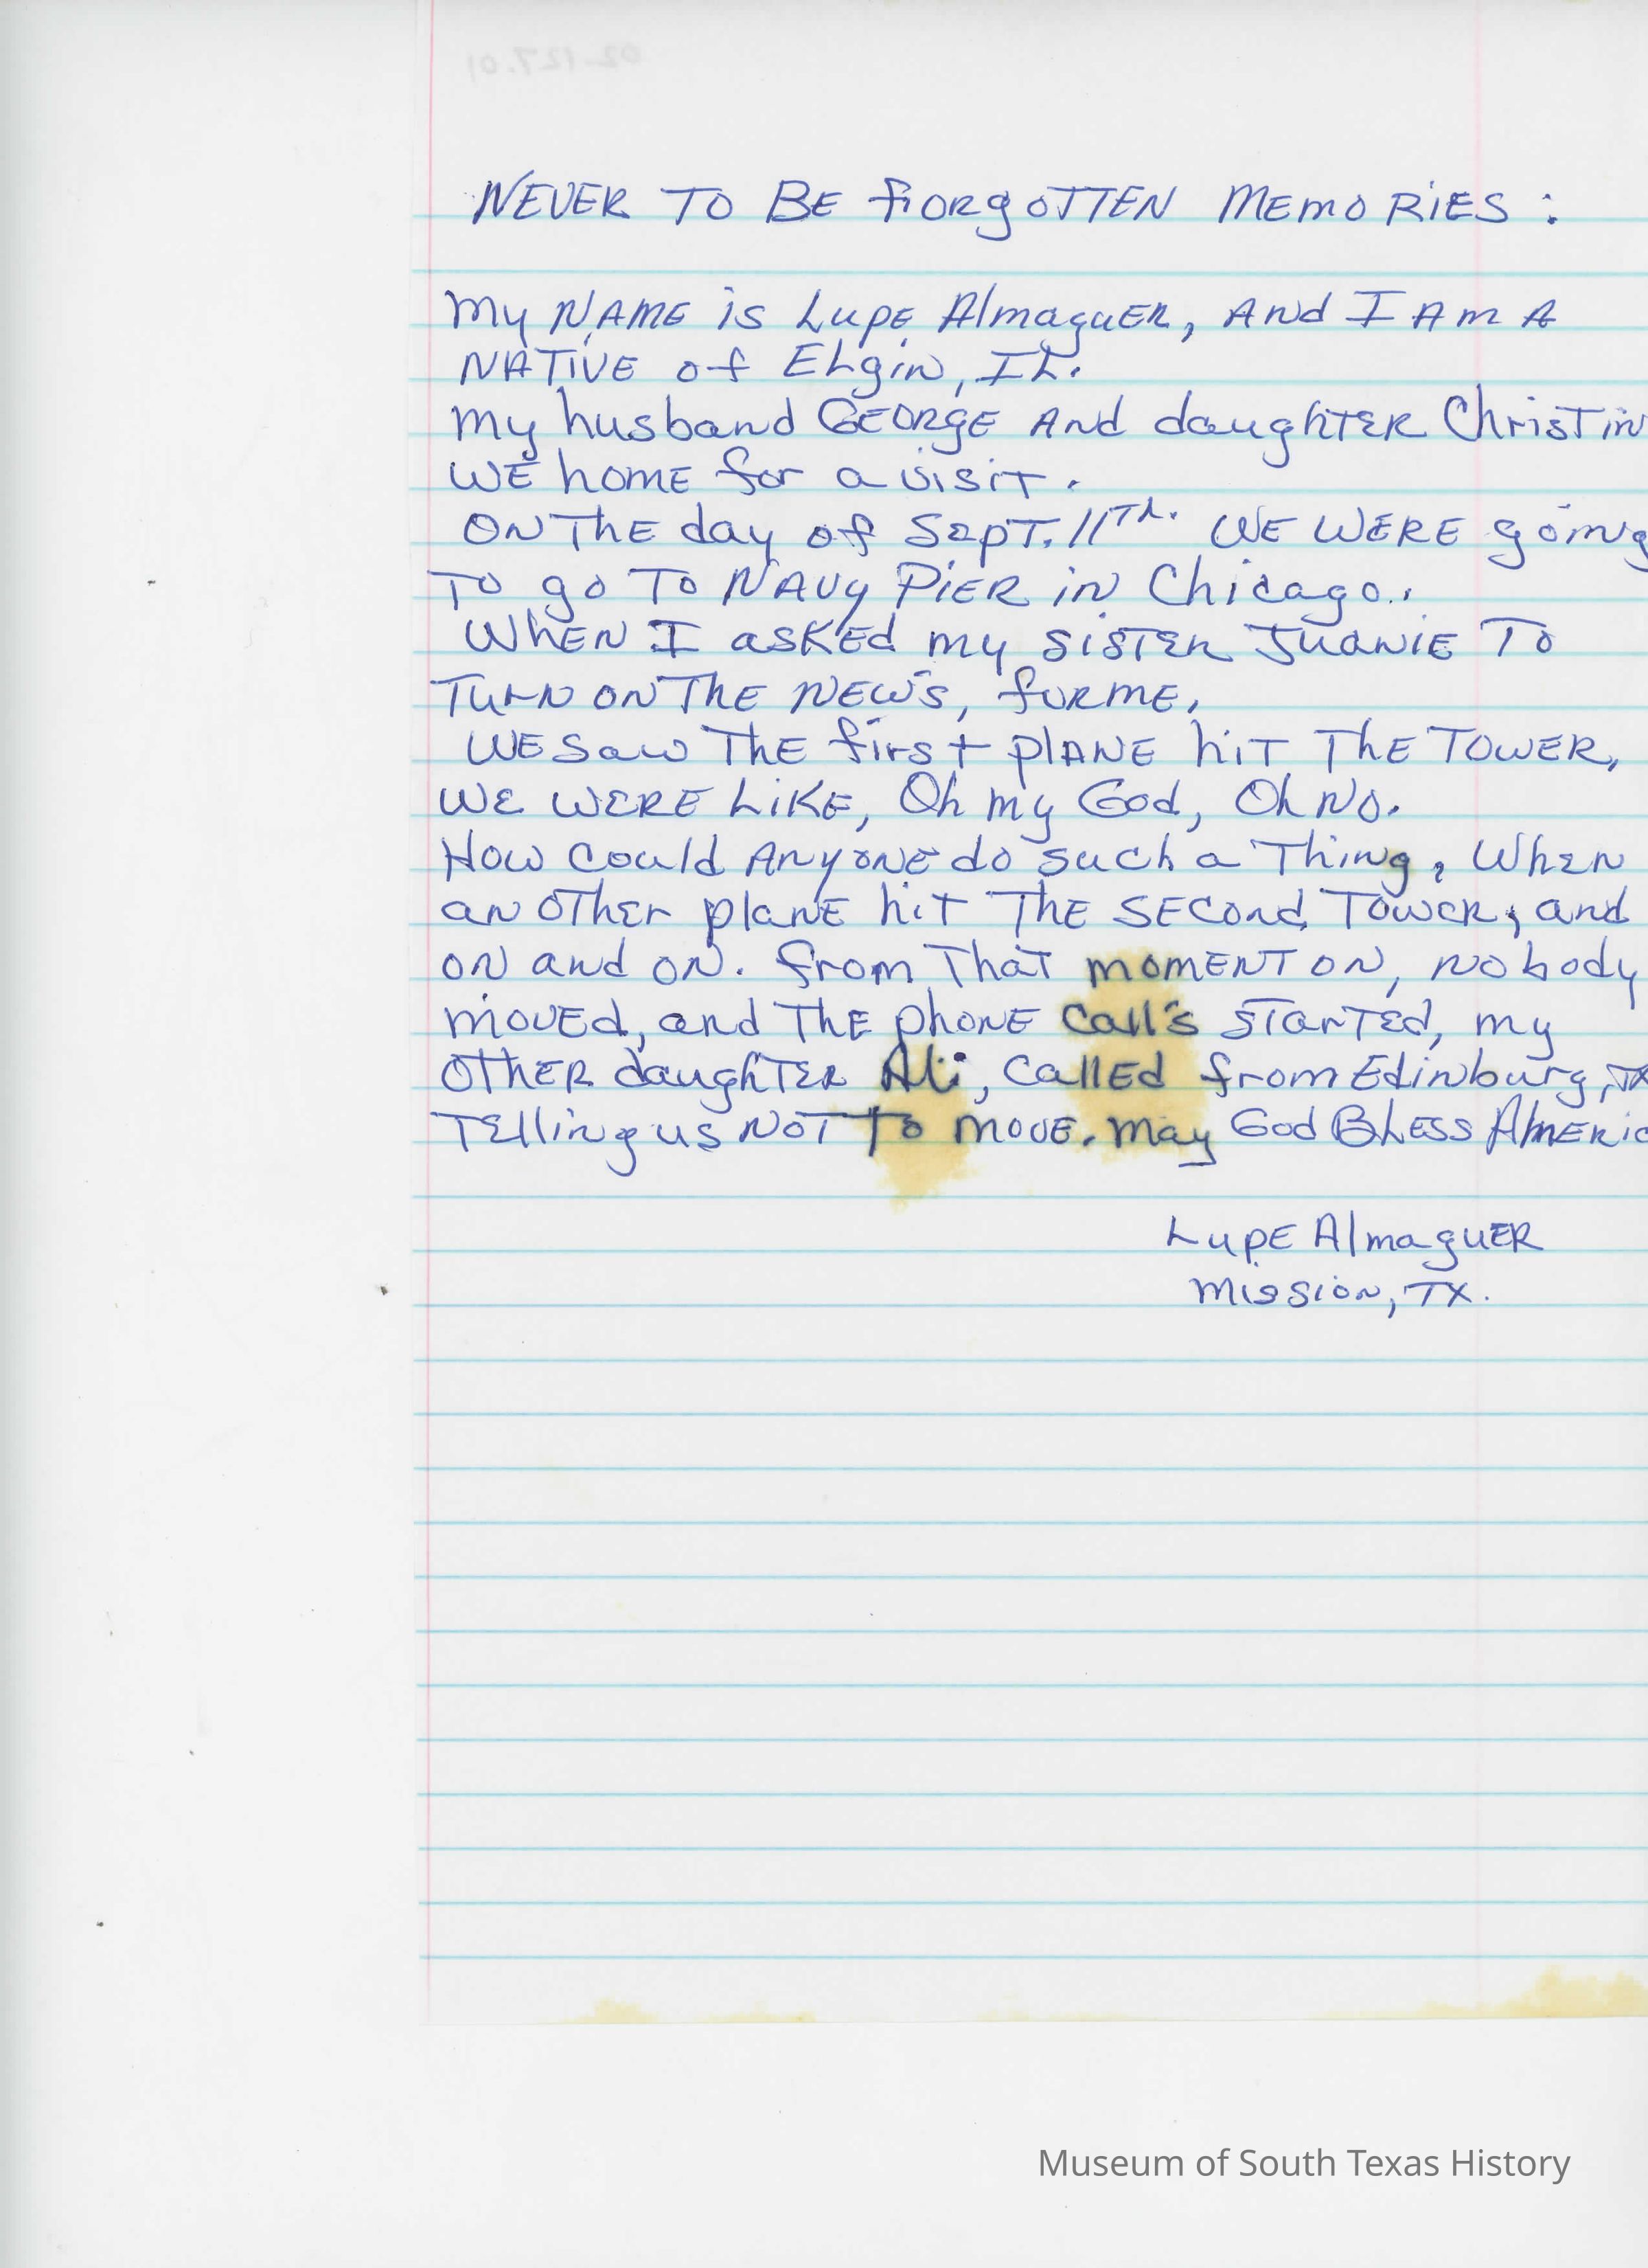 02-127.01
NEVER TO BE FORGOTTEN MEMORIES :
My NAME is Lupe AlmaguER, ANd I Am A
NATIVE of ELgin, IL.
My husband GEORGE ANd daughTER ChrisTin
WE homE for a visiT.
ON ThE day of SepT. 11Th. WE WERE going
To go To NAVy PiER in Chicago.
WhEN I askEd my sisTER JuaniE To
TurN oN ThE NEWS, for ME,
WE saw ThE first plANE hiT ThE TOWER,
WE WERE LiKE, Oh my God, Oh No.
How could ANyoNE do such a Thing, WhEN
aN oThEr planE hiT ThE SECoNd TowER, and
oN and oN. From ThaT momENT oN, Nobody
movEd, and ThE phoNE call's sTarTEd, my
oThER daughTER Ali, callEd from Edinburg, TX
TElling us NoT To movE. May God BLESS AMERic
LupE AlmaguER
Mission, TX.
Museum of South Texas History